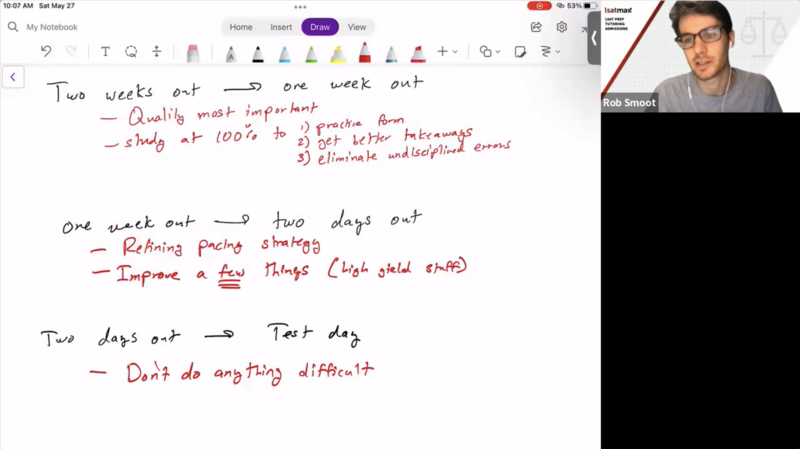 10:07 AM Sat May 27
53%
My Notebook
Home Insert Draw View
Two weeks out → one week out
— Quality most important
— study at 100% to 1) practice form
2) get better takeaways
3) eliminate undisciplined errors
one week out → two days out
— Refining pacing strategy
— Improve a few things (high yield stuff)
Two days out → Test day
— Don't do anything difficult
lsatmax
LSAT PREP
TUTORING
ADMISSIONS
Rob Smoot